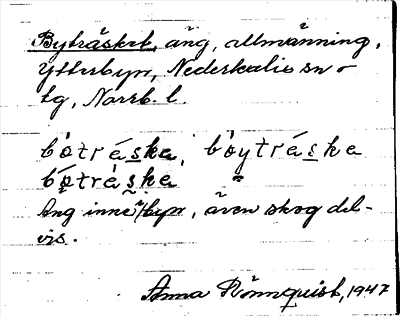 Byträsket, äng, allmänning,
Ytterbyn, Nederkalix sn o
tg, Norrb. l.
bòtréske, bòytréske
bótrèske "
Äng inne i byn, även skog del-
vis.
Anna Rönnquist, 1947